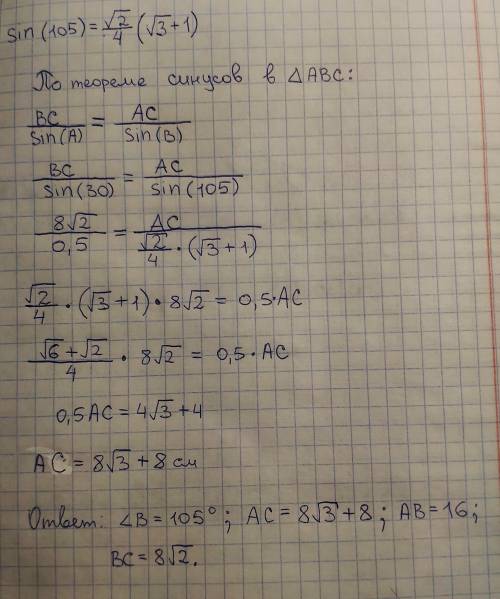 sin(105) = √2/4 (√3+1)
По теореме синусов в △ABC:
BC/sin(A) = AC/sin(B)
BC/sin(30) = AC/sin(105)
8√2/0,5 = AC/(√2/4 · (√3+1))
√2/4 · (√3+1) · 8√2 = 0,5·AC
(√6+√2)/4 · 8√2 = 0,5·AC
0,5AC = 4√3+4
AC = 8√3+8 см
Ответ: ∠B = 105°; AC = 8√3+8; AB = 16;
BC = 8√2.